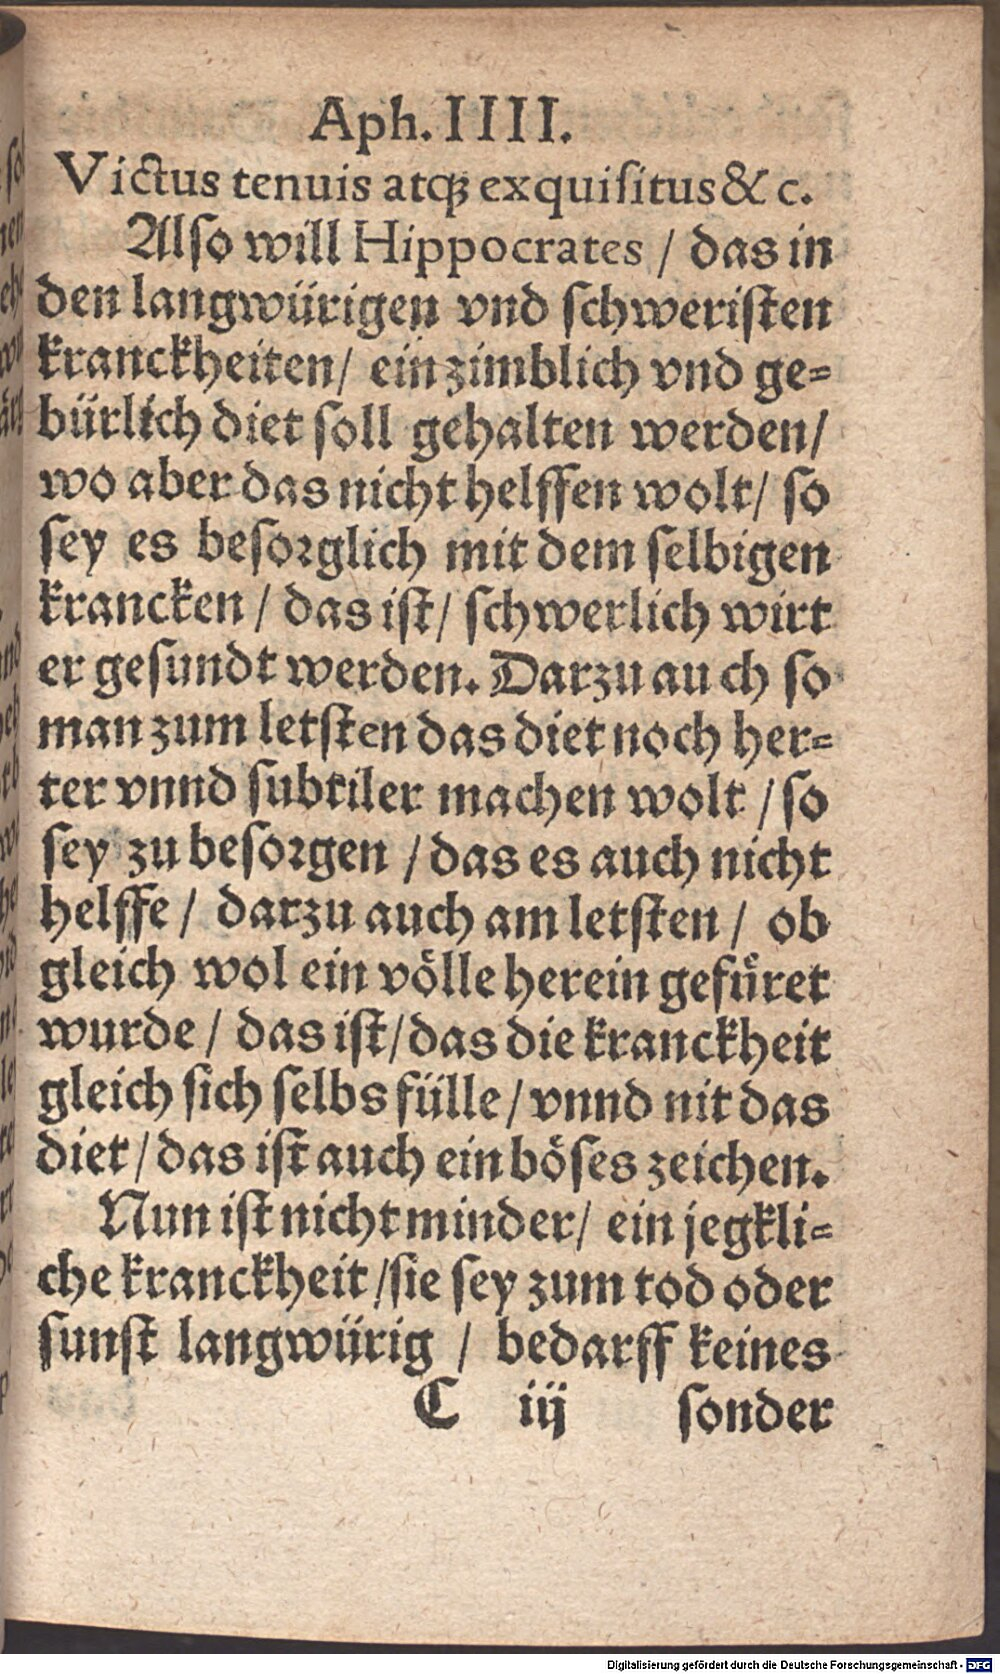 Aph. IIII.
Victus tenuis atqꝫ exquiſitus & c.
Alſo will Hippocrates / das in
den langwürigen vnd ſchweriſten
kranckheiten / ein zimblich vnd ge-
bürlich diet ſoll gehalten werden /
wo aber das nicht helffen wolt / ſo
ſey es beſorglich mit dem ſelbigen
krancken / das iſt / ſchwerlich wirt
er geſundt werden. Darzu auch ſo
man zum letſten das diet noch her-
ter vnnd ſubtiler machen wolt / ſo
ſey zu beſorgen / das es auch nicht
helffe / darzu auch am letſten / ob
gleich wol ein voͤlle herein gefuͤret
wurde / das iſt / das die kranckheit
gleich ſich ſelbs fülle / vnnd nit das
diet / das iſt auch ein boͤſes zeichen.
Nun iſt nicht minder / ein jegkli-
che kranckheit / ſie ſey zum tod oder
ſunſt langwürig / bedarff keines
C iij ſonder
Digitalisierung gefördert durch die Deutsche Forschungsgemeinschaft - DFG